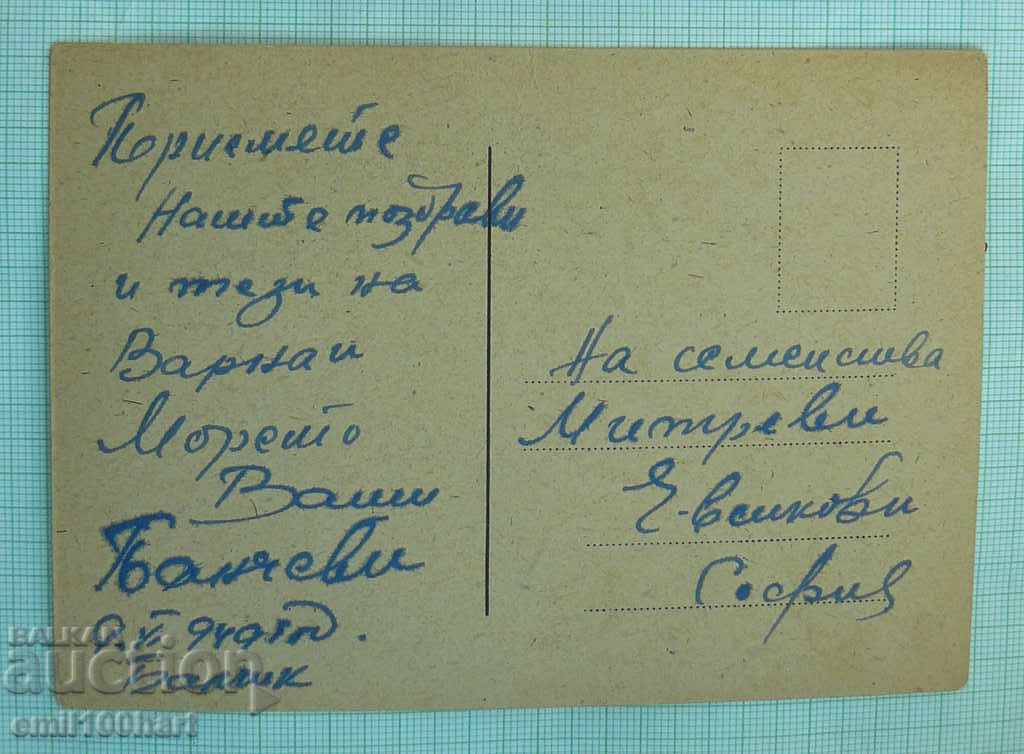 Приемете
Нашите поздрави
и тези на
Варна и
Морето
Ваши
Банчеви
Балчик
На семейства
Митреви
София
БАЛКАН
auction
emil100hart